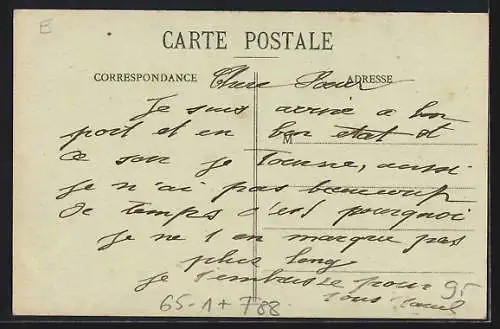 E
CARTE POSTALE
CORRESPONDANCE
ADRESSE
Chere Soeur
Je suis arrivé a bon
port et en bon etat et
M
ce soir je tourne, aussi
je n'ai pas beaucoup
de temps c'est pourquoi
je ne t'en marque pas
plus long
je t'embrasse pour
tous
95
65-1+788